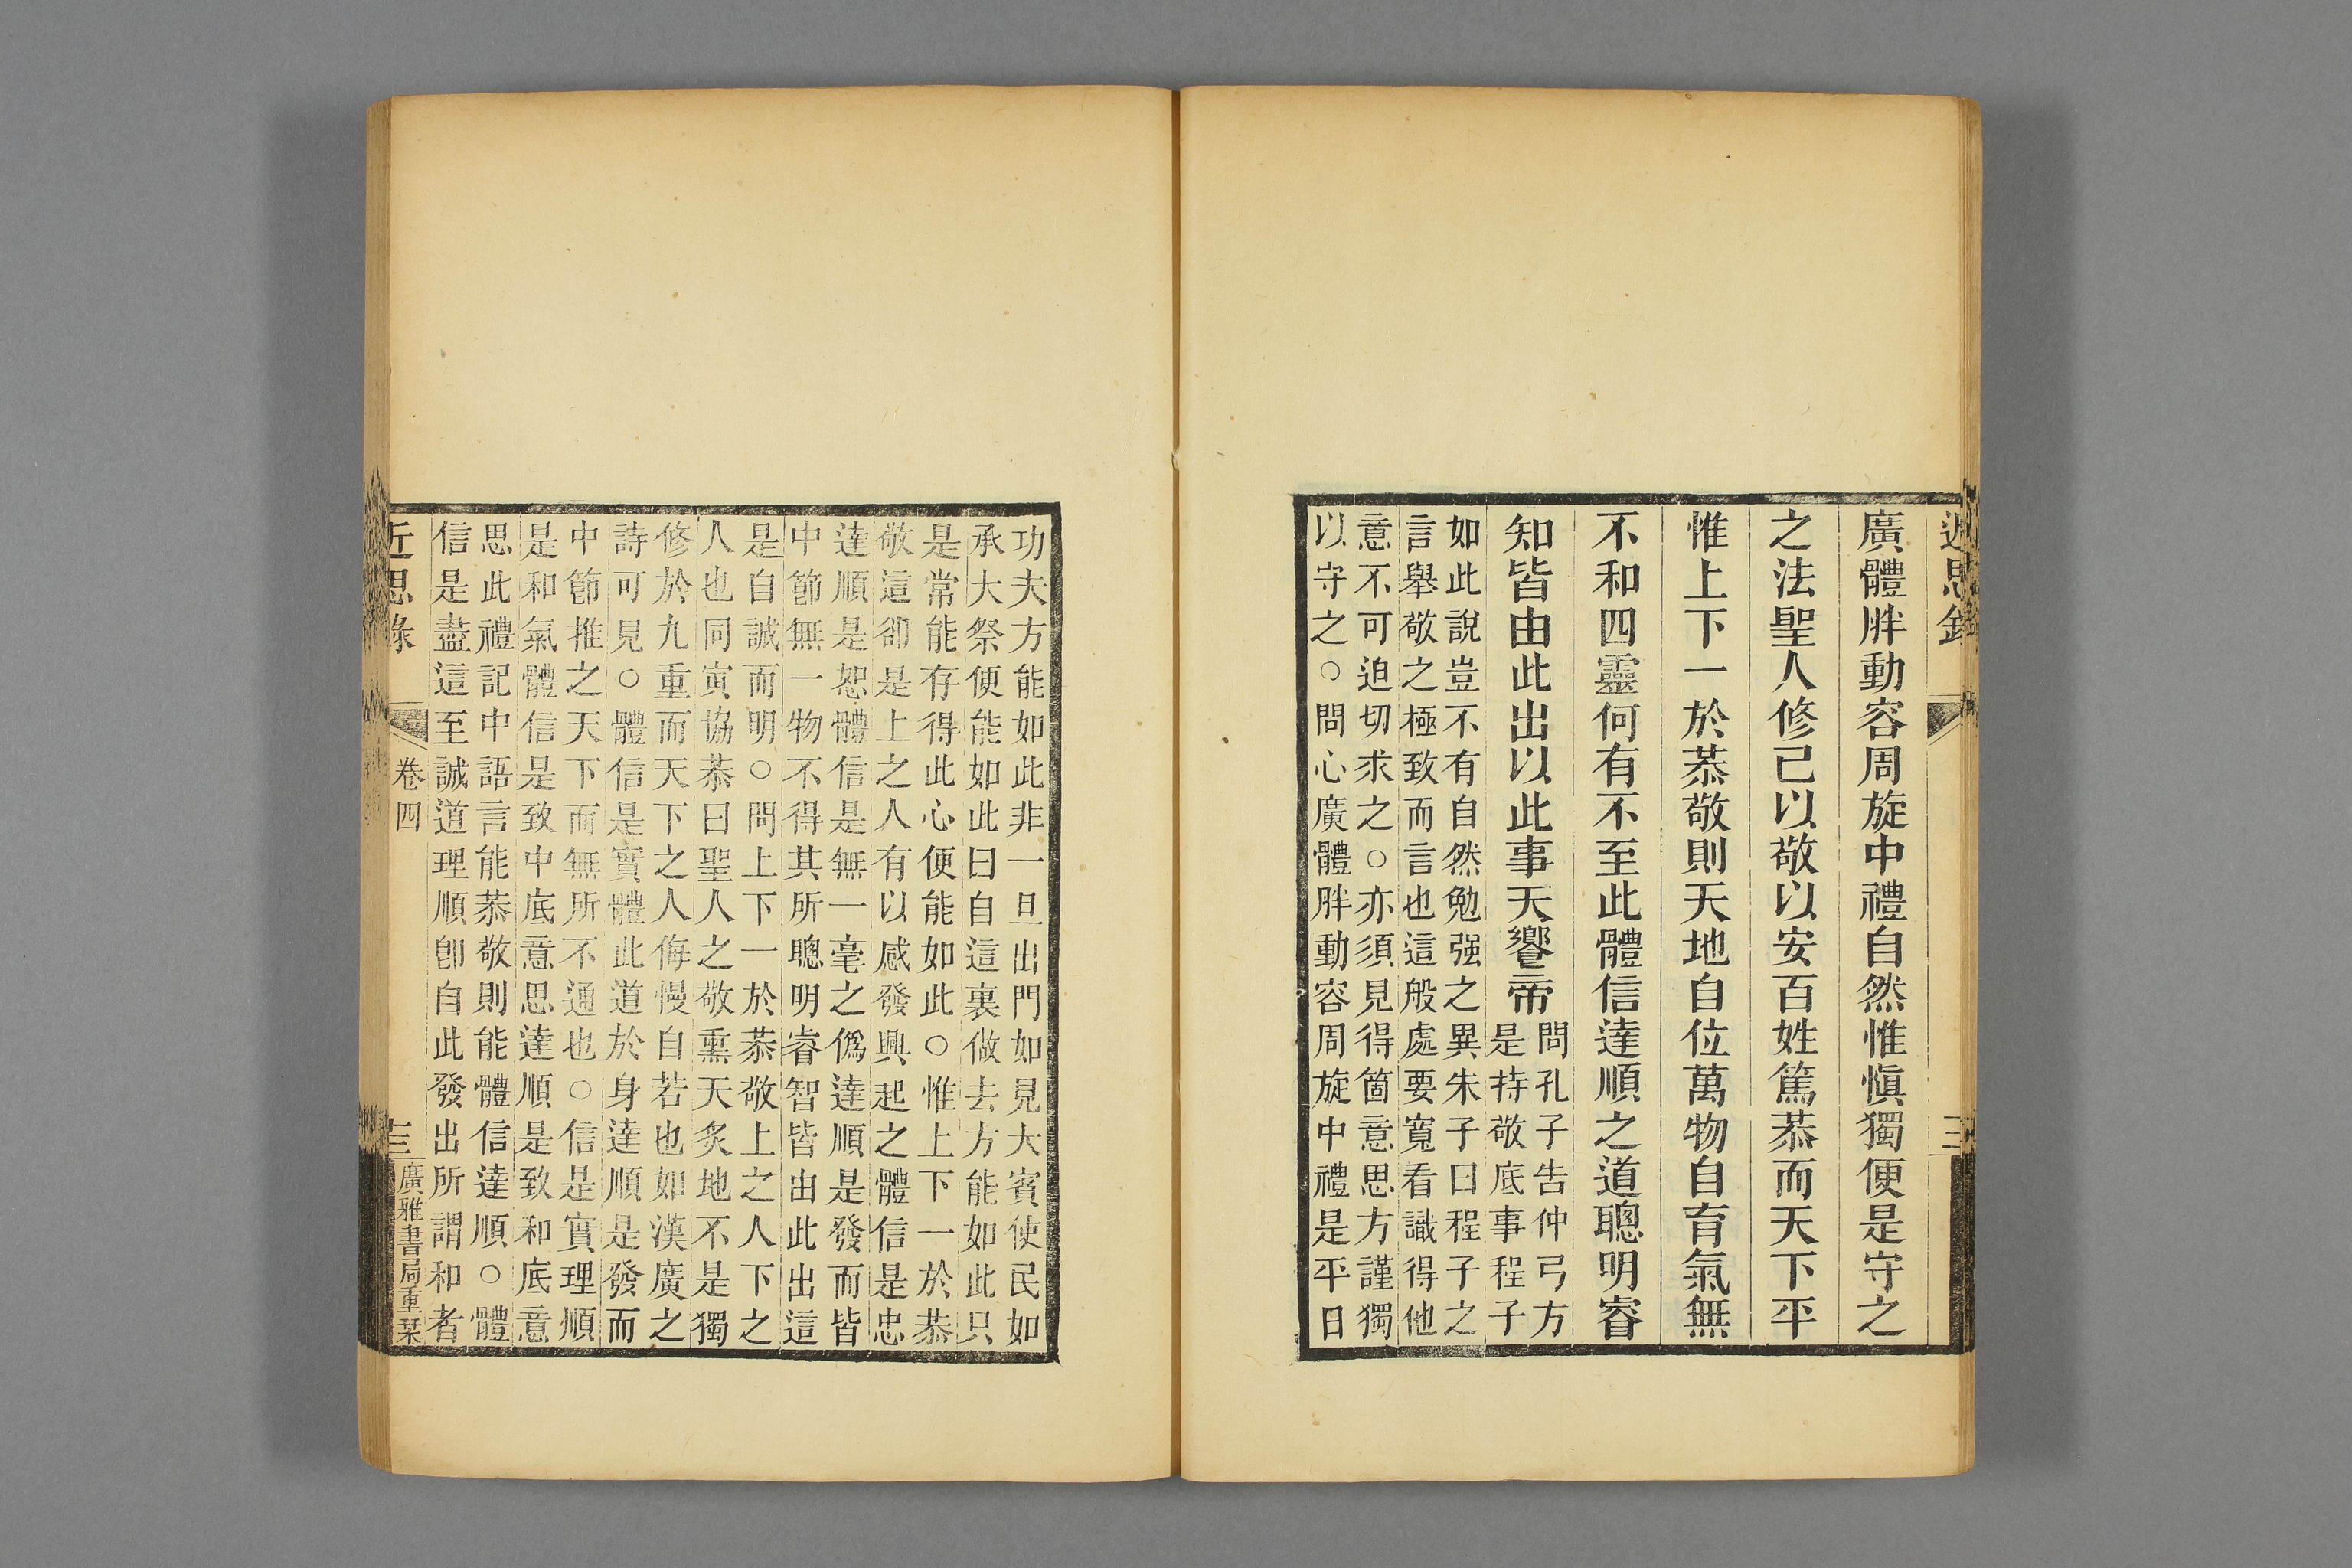 近思錄
三
廣體胖動容周旋中禮自然惟愼獨便是守之
之法聖人修己以敬以安百姓篤恭而天下平
惟上下一於恭敬則天地自位萬物自育氣無
不和四靈何有不至此體信達順之道聰明睿
知皆由此出以此事天饗帝
問孔子告仲弓方
是持敬底事程子
如此說豈不有自然勉强之異朱子曰程子之
言舉敬之極致而言也這般處要寬看識得他
意不可迫切求之○亦須見得箇意思方謹獨
以守之○問心廣體胖動容周旋中禮是平日
功夫方能如此非一旦出門如見大賓使民如
承大祭便能如此曰自這裏做去方能如此只
是常能存得此心便能如此○惟上下一於恭
敬這卻是上之人有以感發興起之體信是忠
達順是恕體信是無一毫之僞達順是發而皆
中節無一物不得其所聰明睿智皆由此出這
是自誠而明○問上下一於恭敬上之人下之
人也同寅協恭曰聖人之敬熏天炙地不是獨
修於九重而天下之人侮慢自若也如漢廣之
詩可見○體信是實體此道於身達順是發而
中節推之天下而無所不通也○信是實理順
是和氣體信是致中底意思達順是致和底意
思此禮記中語言能恭敬則能體信達順○體
信是盡這至誠道理順卽自此發出所謂和者
近思錄
卷四
三
廣雅書局重栞